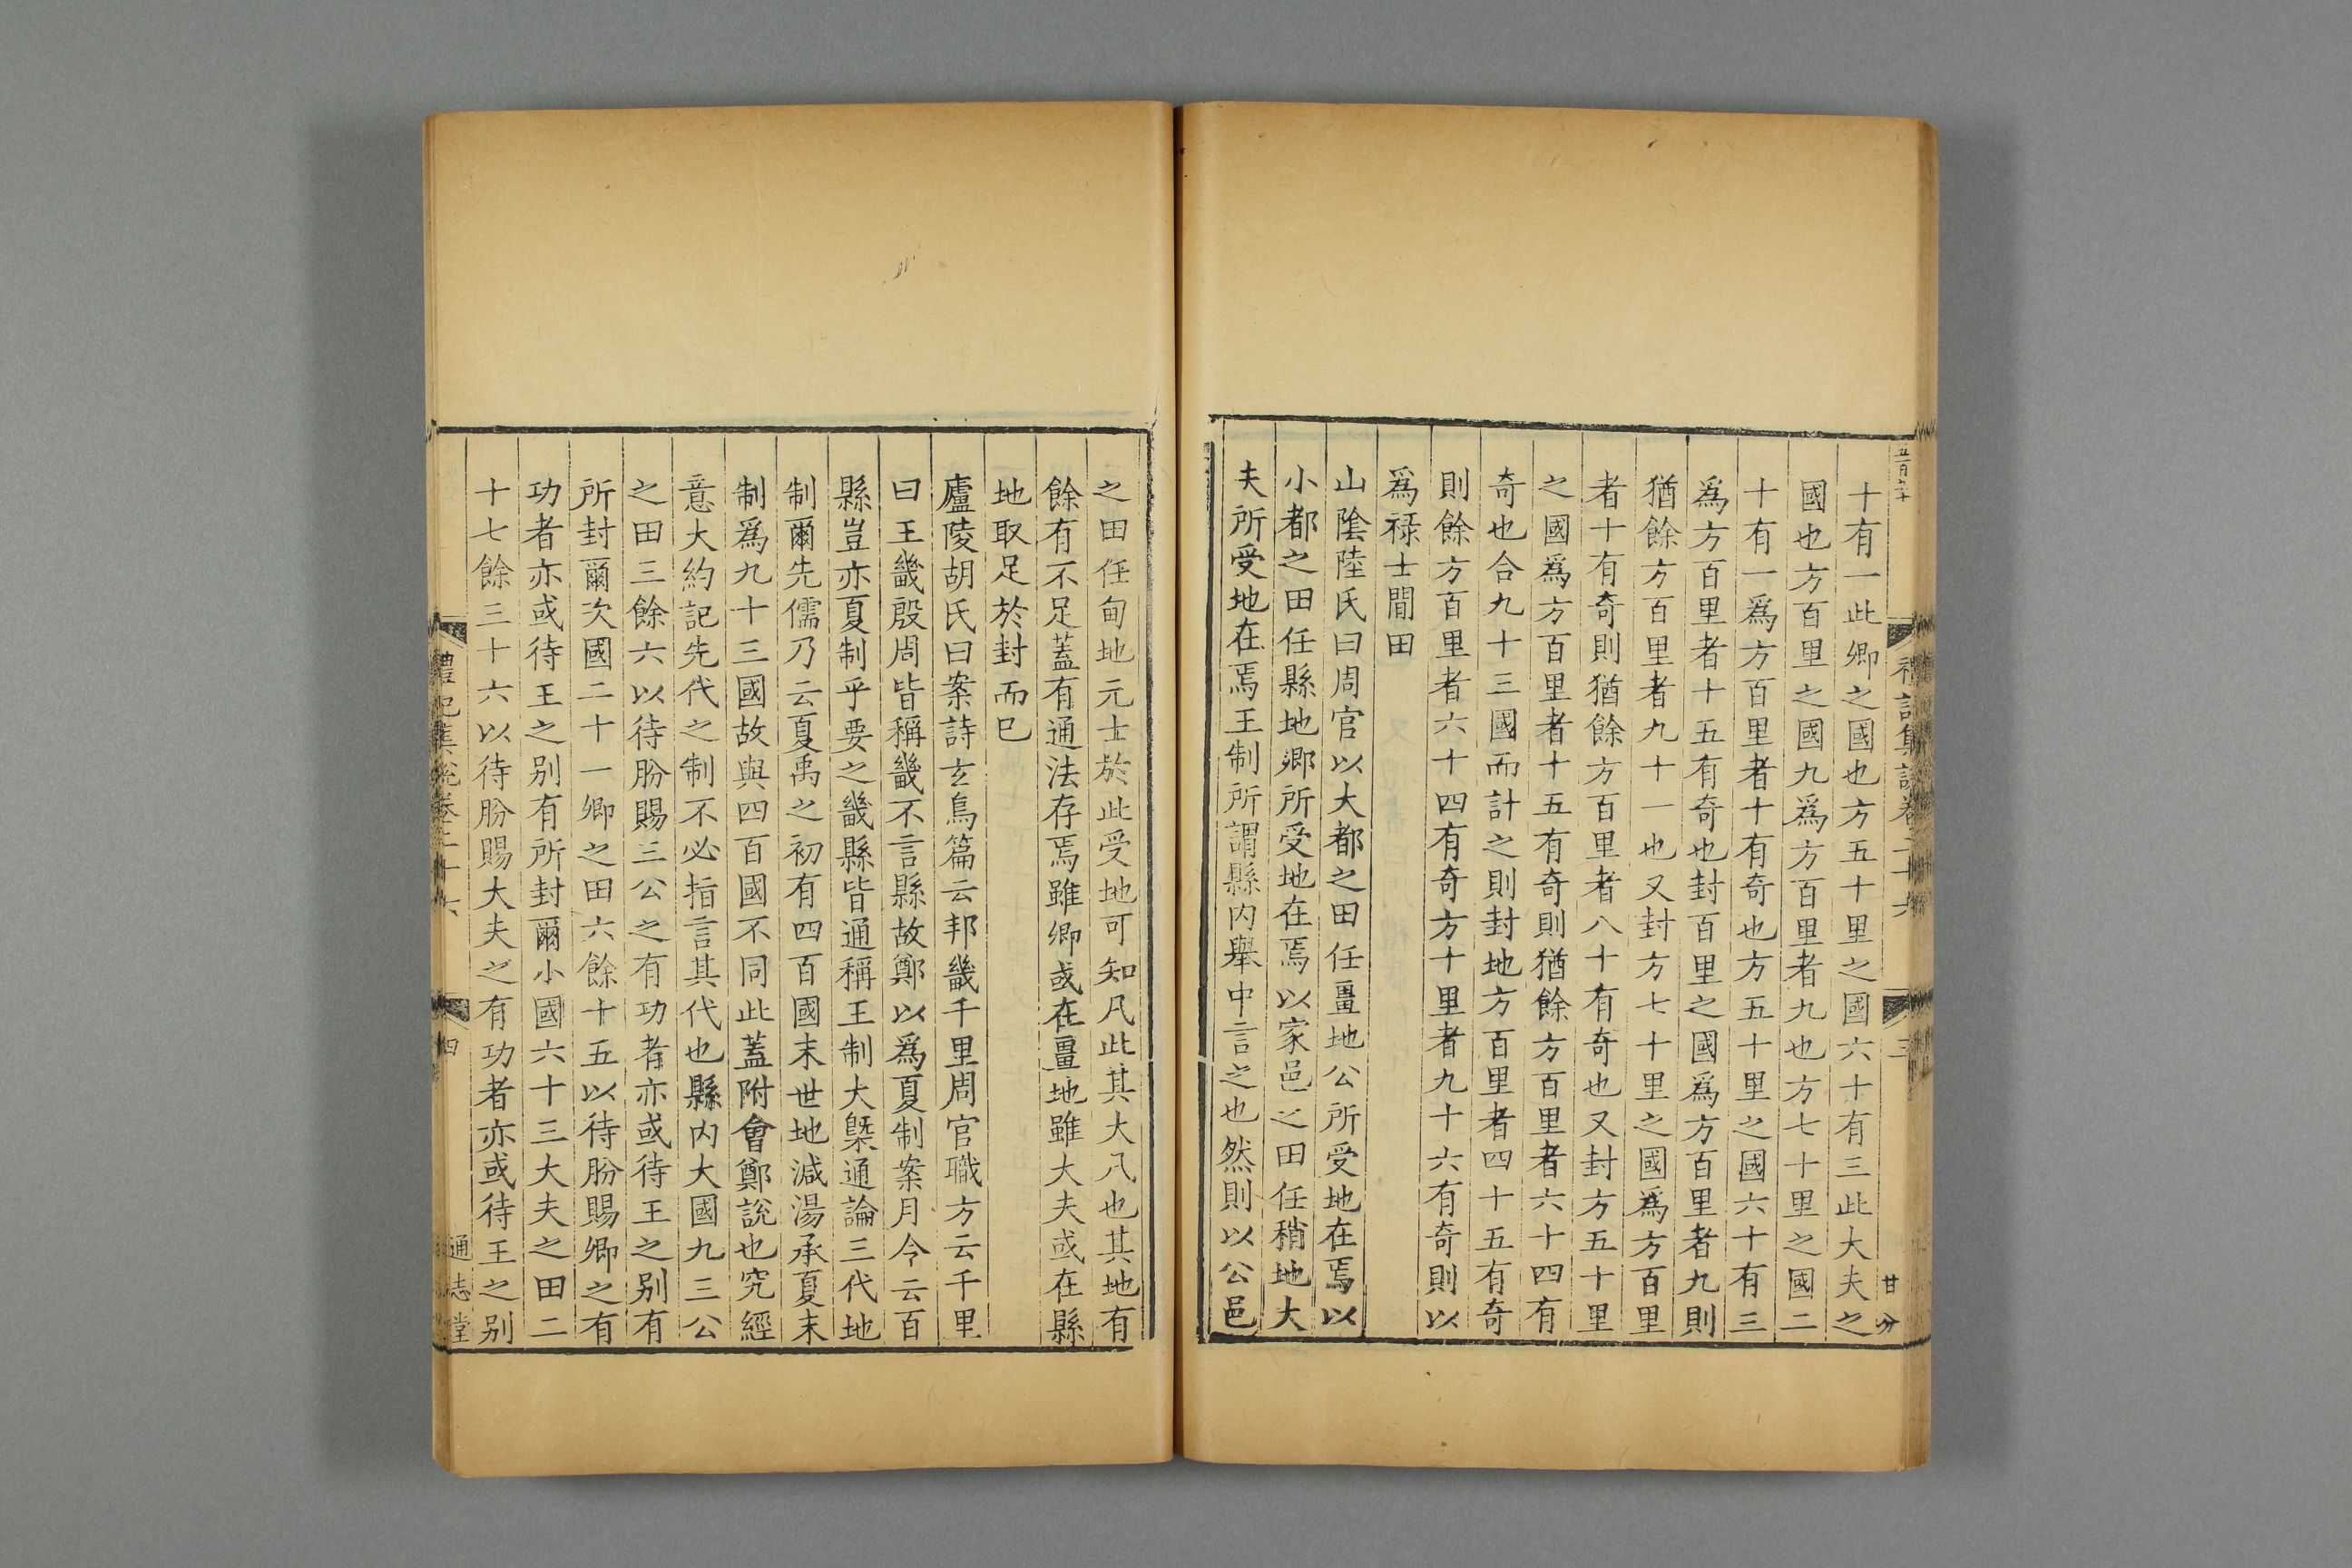 十有一此卿之國也方五十里之國六十有三此大夫之
國也方百里之國九爲方百里者九也方七十里之國二
十有一爲方百里者十有奇也方五十里之國六十有三
爲方百里者十五有奇也封百里之國爲方百里者九則
猶餘方百里者九十一也又封方七十里之國爲方百里
者十有奇則猶餘方百里者八十有奇也又封方五十里
之國爲方百里者十五有奇則猶餘方百里者六十四有
奇也合九十三國而計之則封地方百里者四十五有奇
則餘方百里者六十四有奇方十里者九十六有奇則以
爲祿士閒田
山陰陸氏曰周官以大都之田任畺地公所受地在焉以
小都之田任縣地卿所受地在焉以家邑之田任稍地大
夫所受地在焉王制所謂縣内舉中言之也然則以公邑
之田任甸地元士於此受地可知凡此其大八也其地有
餘有不足蓋有通法存焉雖卿或在畺地雖大夫或在縣
地取足於封而已
廬陵胡氏曰案詩玄鳥篇云邦畿千里周官職方云千里
曰王畿殷周皆稱畿不言縣故鄭以爲夏制案月令云百
縣豈亦夏制乎要之畿縣皆通稱王制大槩通論三代地
制爾先儒乃云夏禹之初有四百國末世地減湯承夏末
制爲九十三國故與四百國不同此蓋附會鄭說也究經
意大約記先代之制不必指言其代也縣内大國九三公
之田三餘六以待朌賜三公之有功者亦或待王之别有
所封爾次國二十一卿之田六餘十五以待朌賜卿之有
功者亦或待王之别有所封爾小國六十三大夫之田二
十七餘三十六以待朌賜大夫之有功者亦或待王之别
禮記集說卷二十六
四
通志堂